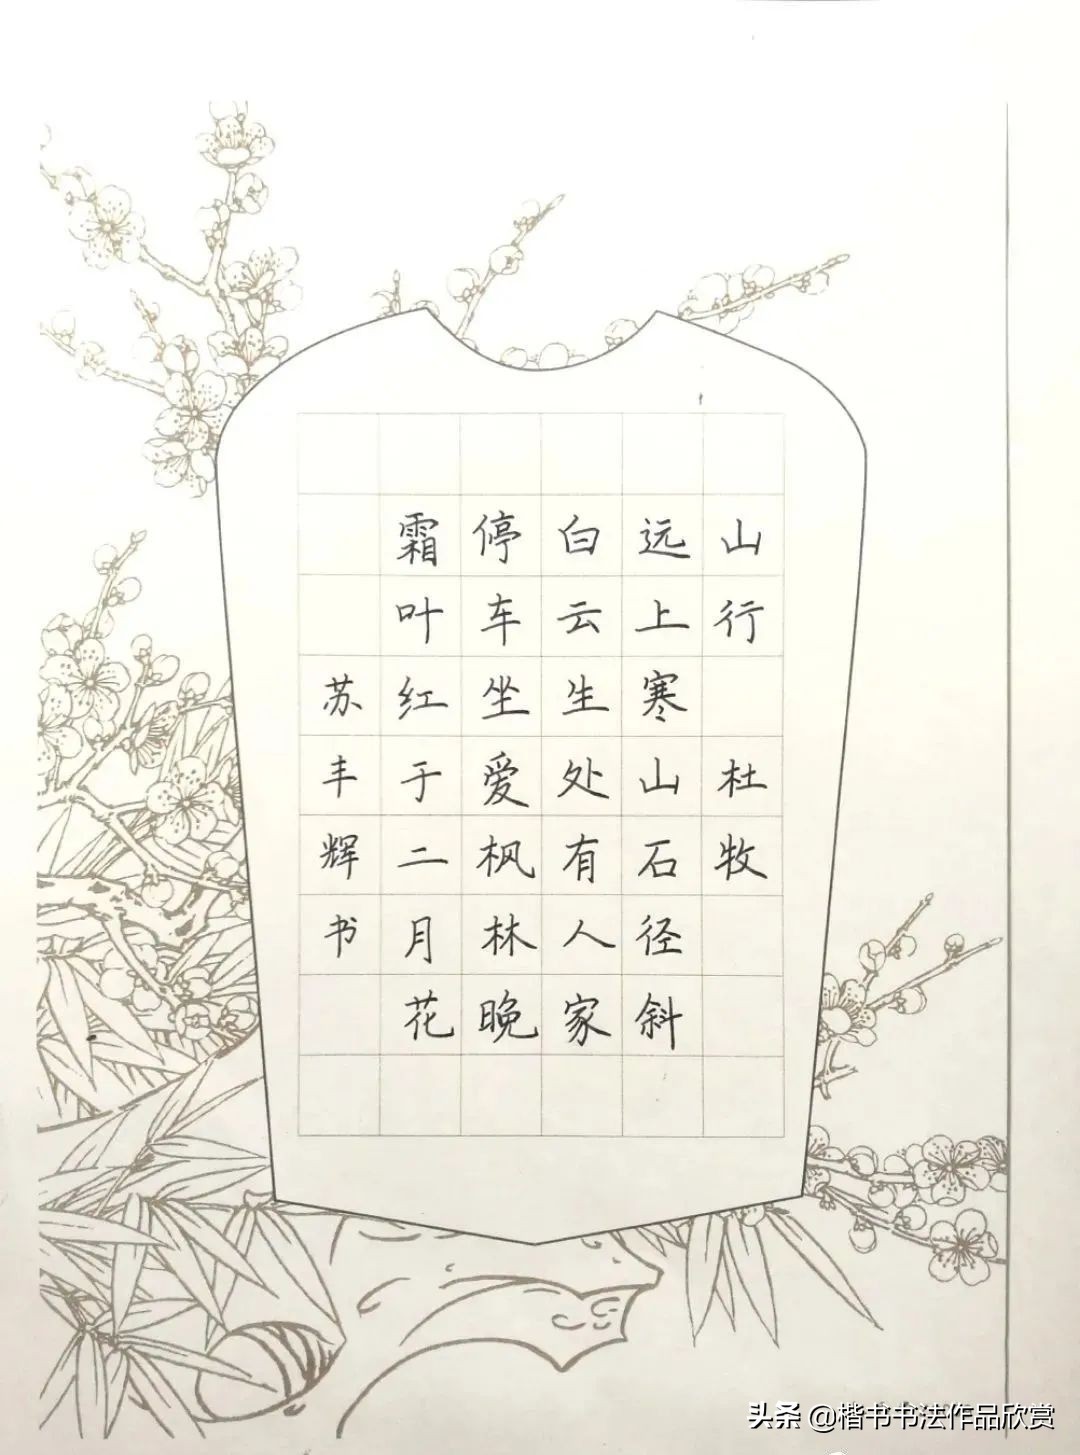 山行 杜牧
远上寒山石径斜
白云生处有人家
停车坐爱枫林晚
霜叶红于二月花
苏丰辉书
头条 @楷书书法作品欣赏